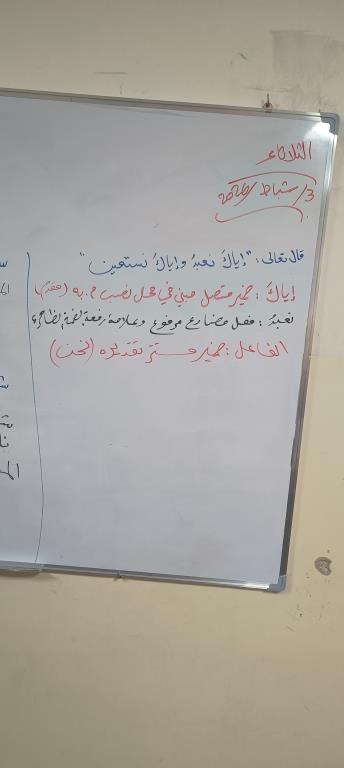 الثلاثاء
3/ شباط /
قال تعالى: "إياك نعبدُ وإياك نستعين"
إياكَ: ضمير متصل مبني في محل نصب م. به (مقدم)
نعبدُ: فعل مضارع مرفوع وعلامة رفعه الضمة الظاهرة
الفاعل: ضمير مستتر تقديره (نحن)